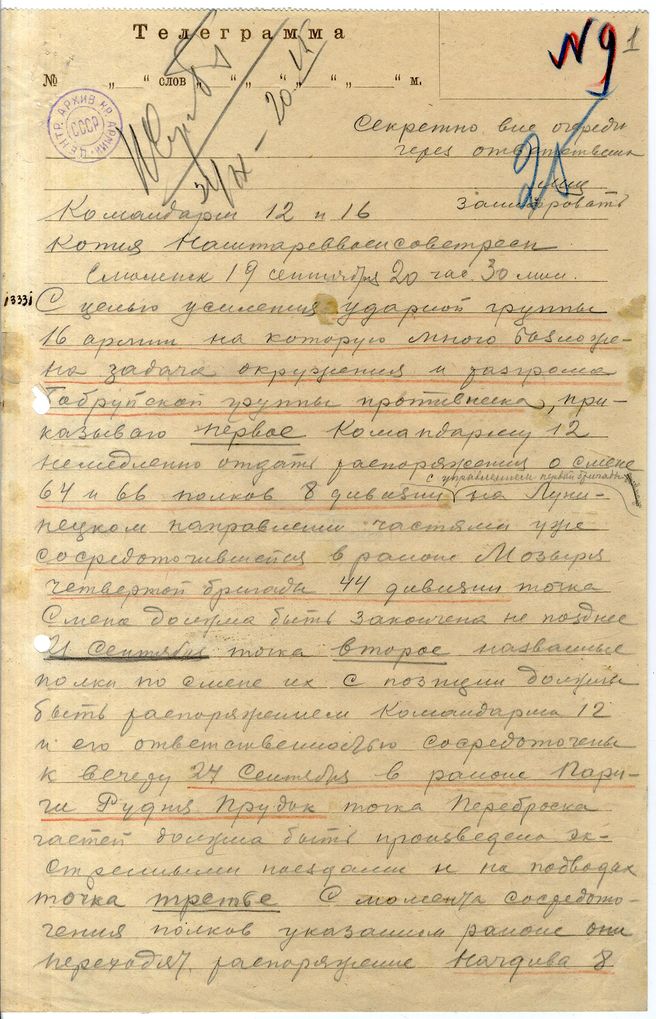 Телеграмма
№ „ “ слов „ “ „ “ „ “ м.
№ 9 1
25
ЦЕНТР. АРХИВ КР. АРМИИ
СССР
Секретно вне очереди
через ответственн
лиц
зашифровать
Командарм 12 и 16
Копия Наштареввоенсоветресп
Смоленск 19 сентября 20 час. 30 мин.
1333
С целью усиления ударной группы
16 армии на которую мною возложе-
на задача окружения и разгрома
Бобруйской группы противника, при-
казываю первое Командарму 12
немедленно отдать распоряжения о смене
с управлением первой бригады
64 и 66 полков 8 дивизии на Луни-
нецком направлении частями уже
сосредоточившейся в районе Мозыря
четвертой бригады 44 дивизии точка
Смена должна быть закончена не позднее
21 Сентября точка второе названные
полки по смене их с позиции должны
быть распоряжением Командарма 12
и его ответственностью сосредоточены
к вечеру 27 Сентября в районе Пари-
чи Рудня Прудок точка Переброска
частей должна быть произведена эк-
стренными поездами и на подводах
точка третье С момента сосредото-
чения полков указанном районе они
переходят распоряжение Начдива 8